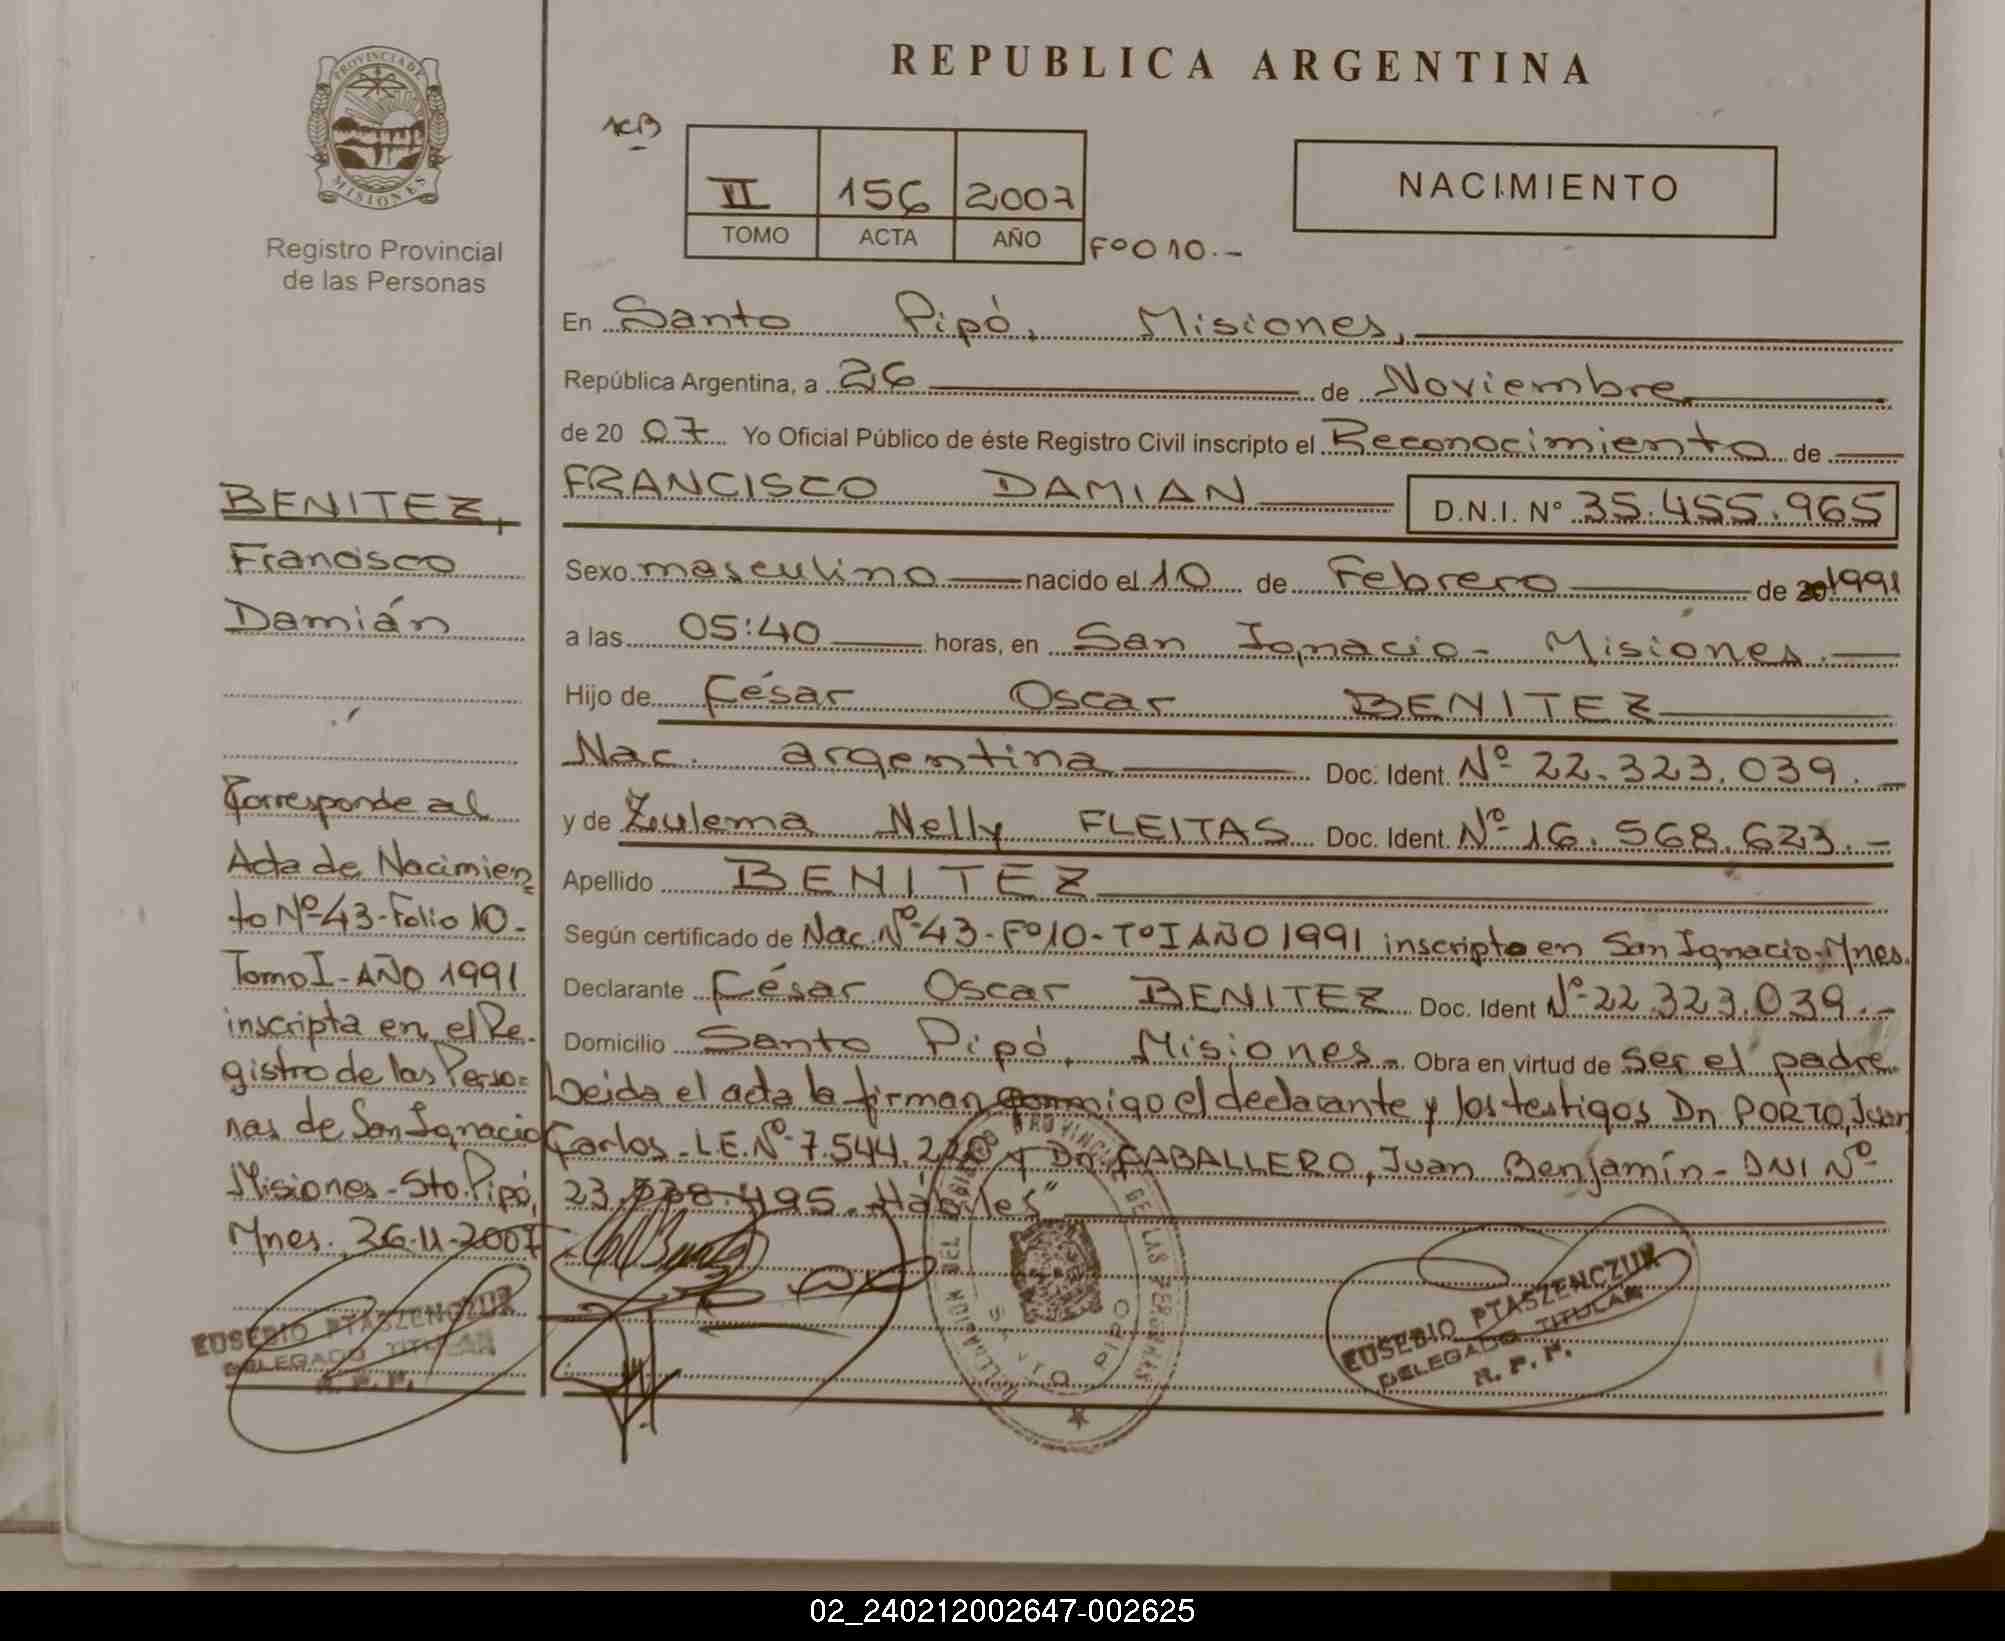 REPUBLICA ARGENTINA
PROVINCIA DE
MISIONES
Registro Provincial
de las Personas
II 156 2007
TOMO ACTA AÑO
Fº010.-
NACIMIENTO
En Santo Pipó, Misiones,
República Argentina, a 26 de Noviembre
de 20 07 Yo Oficial Público de éste Registro Civil inscripto el Reconocimiento de
FRANCISCO DAMIAN D.N.I. Nº 35.455.965
Sexo masculino nacido el 10 de Febrero de 20 1991
a las 05:40 horas, en San Ignacio - Misiones.
Hijo de César Oscar BENITEZ
Nac. argentina Doc. Ident. Nº 22.323.039.-
y de Zulema Nelly FLEITAS Doc. Ident. Nº 16.568.623.-
Apellido BENITEZ
Según certificado de Nac. Nº 43-Fº10-TºI AÑO 1991 inscripto en San Ignacio-Mnes.
Declarante César Oscar BENITEZ Doc. Ident Nº 22.323.039.-
Domicilio Santo Pipó, Misiones. Obra en virtud de ser el padre.
Leida el acta la firman conmigo el declarante y los testigos Dn PORTO, Juan
Carlos - L.E. Nº 7.544.220 y Dn. CABALLERO, Juan Benjamín - DNI Nº
23.738.495. Hábiles"
BENITEZ,
Francisco
Damián
Corresponde al
Acta de Nacimien=
to Nº 43-Folio 10-
Tomo I-AÑO 1991
inscripta en el Re-
gistro de las Perso=
nas de San Ignacio
Misiones - Sto. Pipó,
Mnes. 26-11-2007
EUSEBIO PTASZENCZUK
DELEGADO TITULAR
R. P. P.
DELEGACION DEL REGISTRO PROVINCIAL DE LAS PERSONAS
SANTO PIPO
EUSEBIO PTASZENCZUK
DELEGADO TITULAR
R. P. P.
02_240212002647-002625